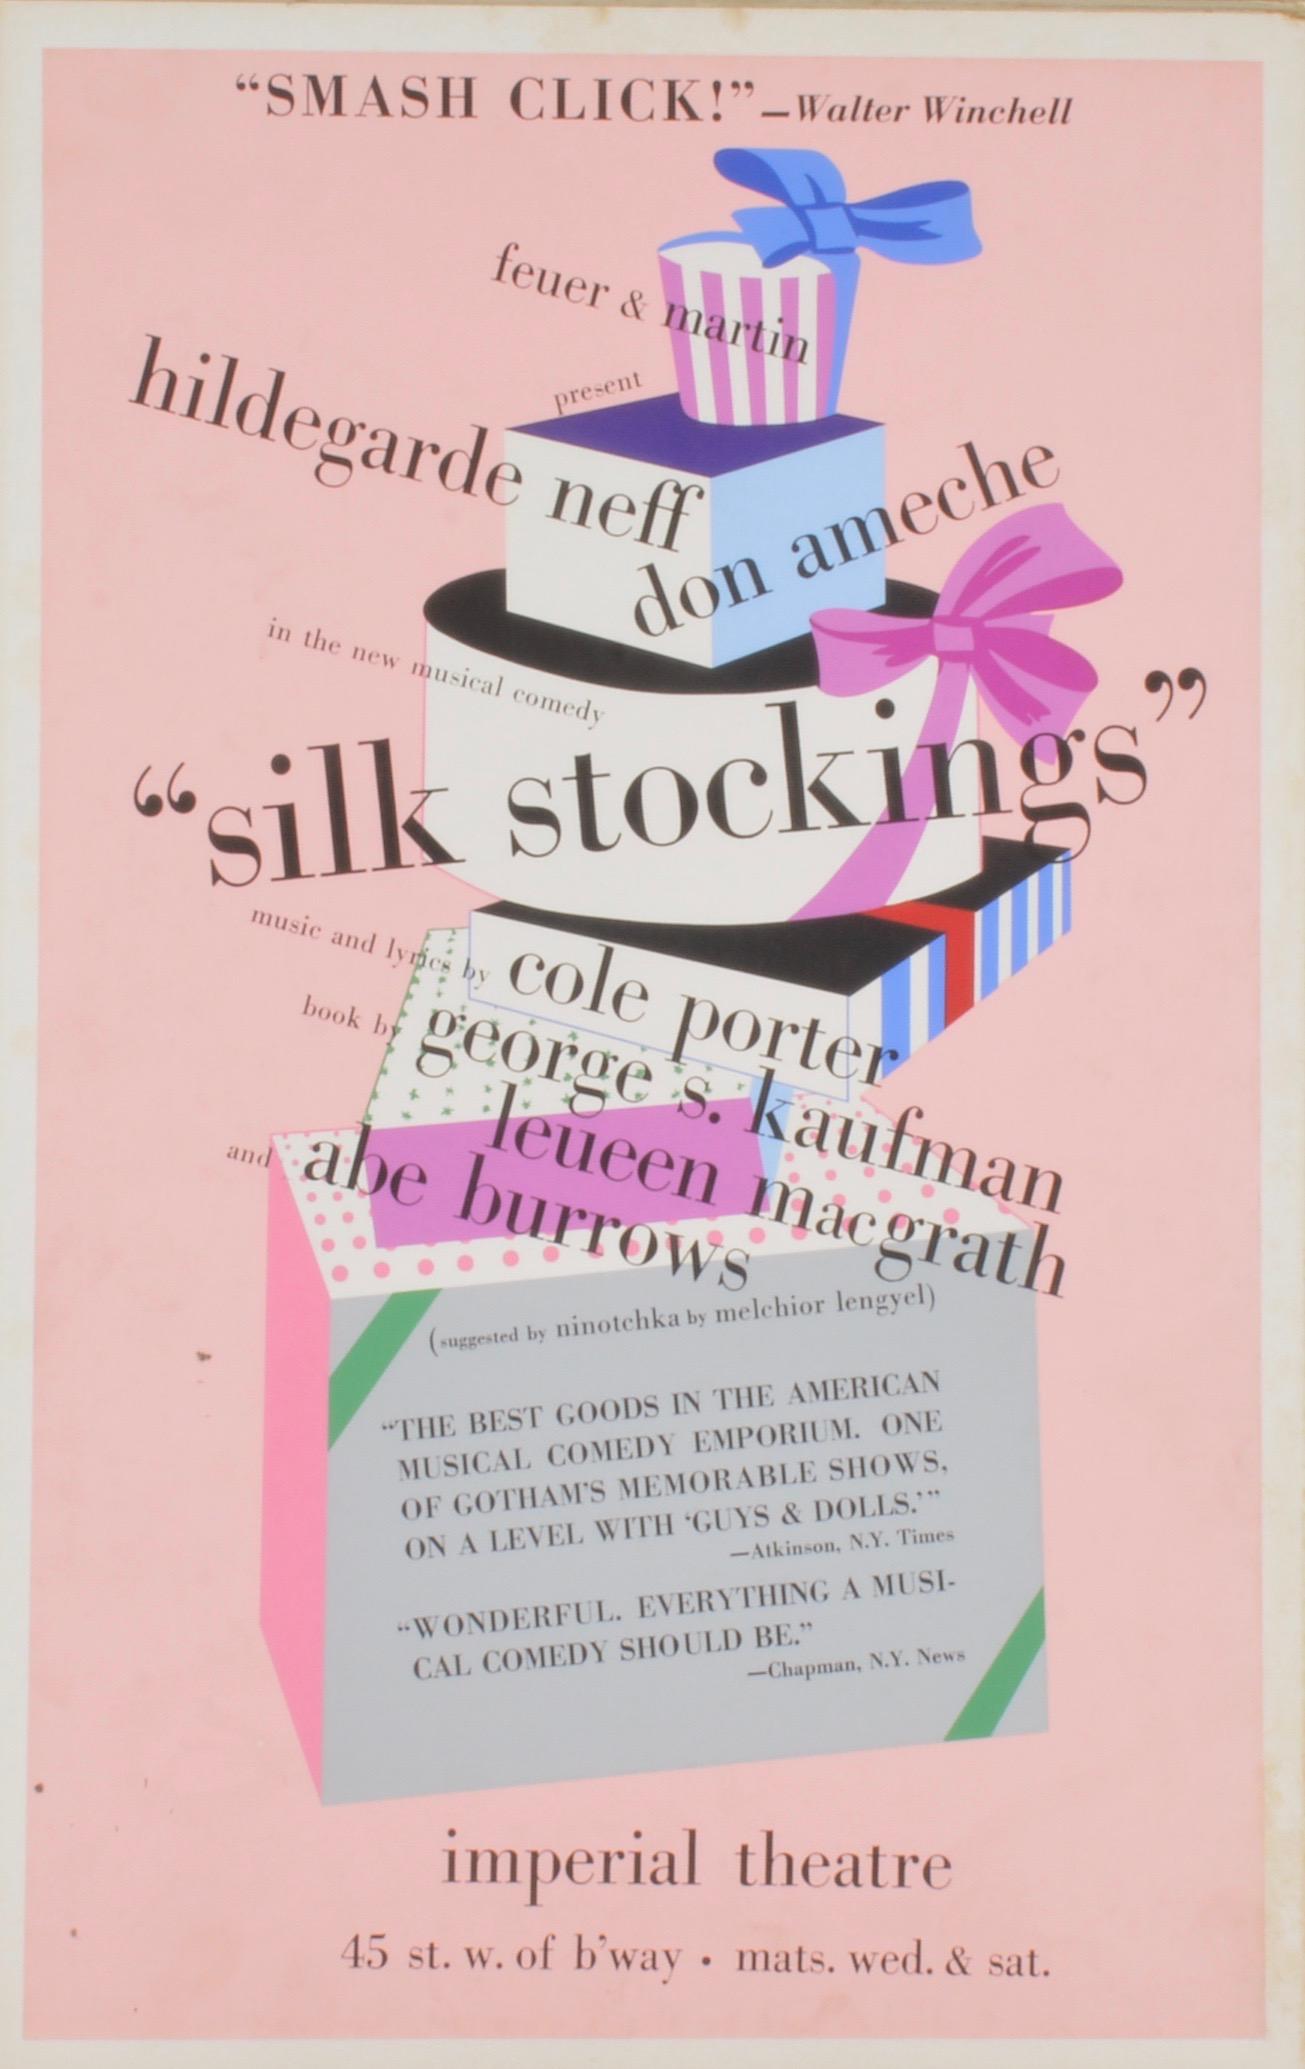 “SMASH CLICK!”—Walter Winchell
feuer & martin
present
hildegarde neff
don ameche
in the new musical comedy
“silk stockings”
music and lyrics by cole porter
book by george s. kaufman
leueen macgrath
and abe burrows
(suggested by ninotchka by melchior lengyel)
“THE BEST GOODS IN THE AMERICAN
MUSICAL COMEDY EMPORIUM. ONE
OF GOTHAM’S MEMORABLE SHOWS,
ON A LEVEL WITH ‘GUYS & DOLLS.’”
—Atkinson, N.Y. Times
“WONDERFUL. EVERYTHING A MUSI-
CAL COMEDY SHOULD BE.”
—Chapman, N.Y. News
imperial theatre
45 st. w. of b’way • mats. wed. & sat.